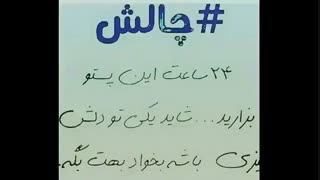 #چالش
۲۴ ساعت این پستو
بزارید...شاید یکی تو دلش
یزی باشه بخواد بهت بگه.